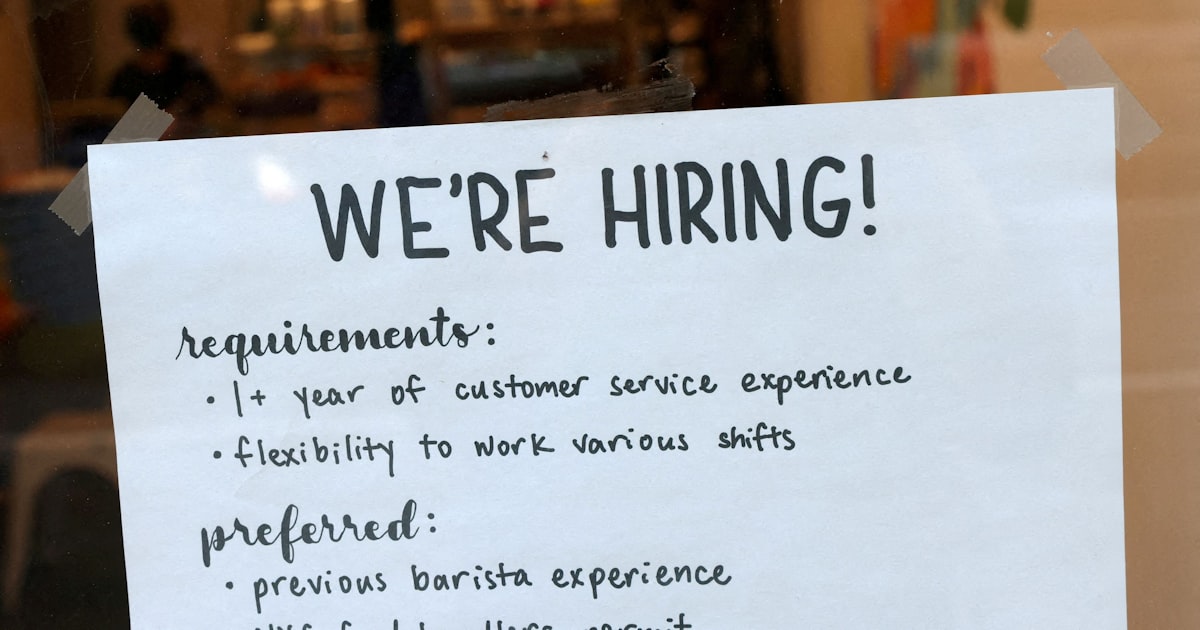 WE'RE HIRING!
requirements:
• 1+ year of customer service experience
• flexibility to work various shifts
preferred:
• previous barista experience
permit